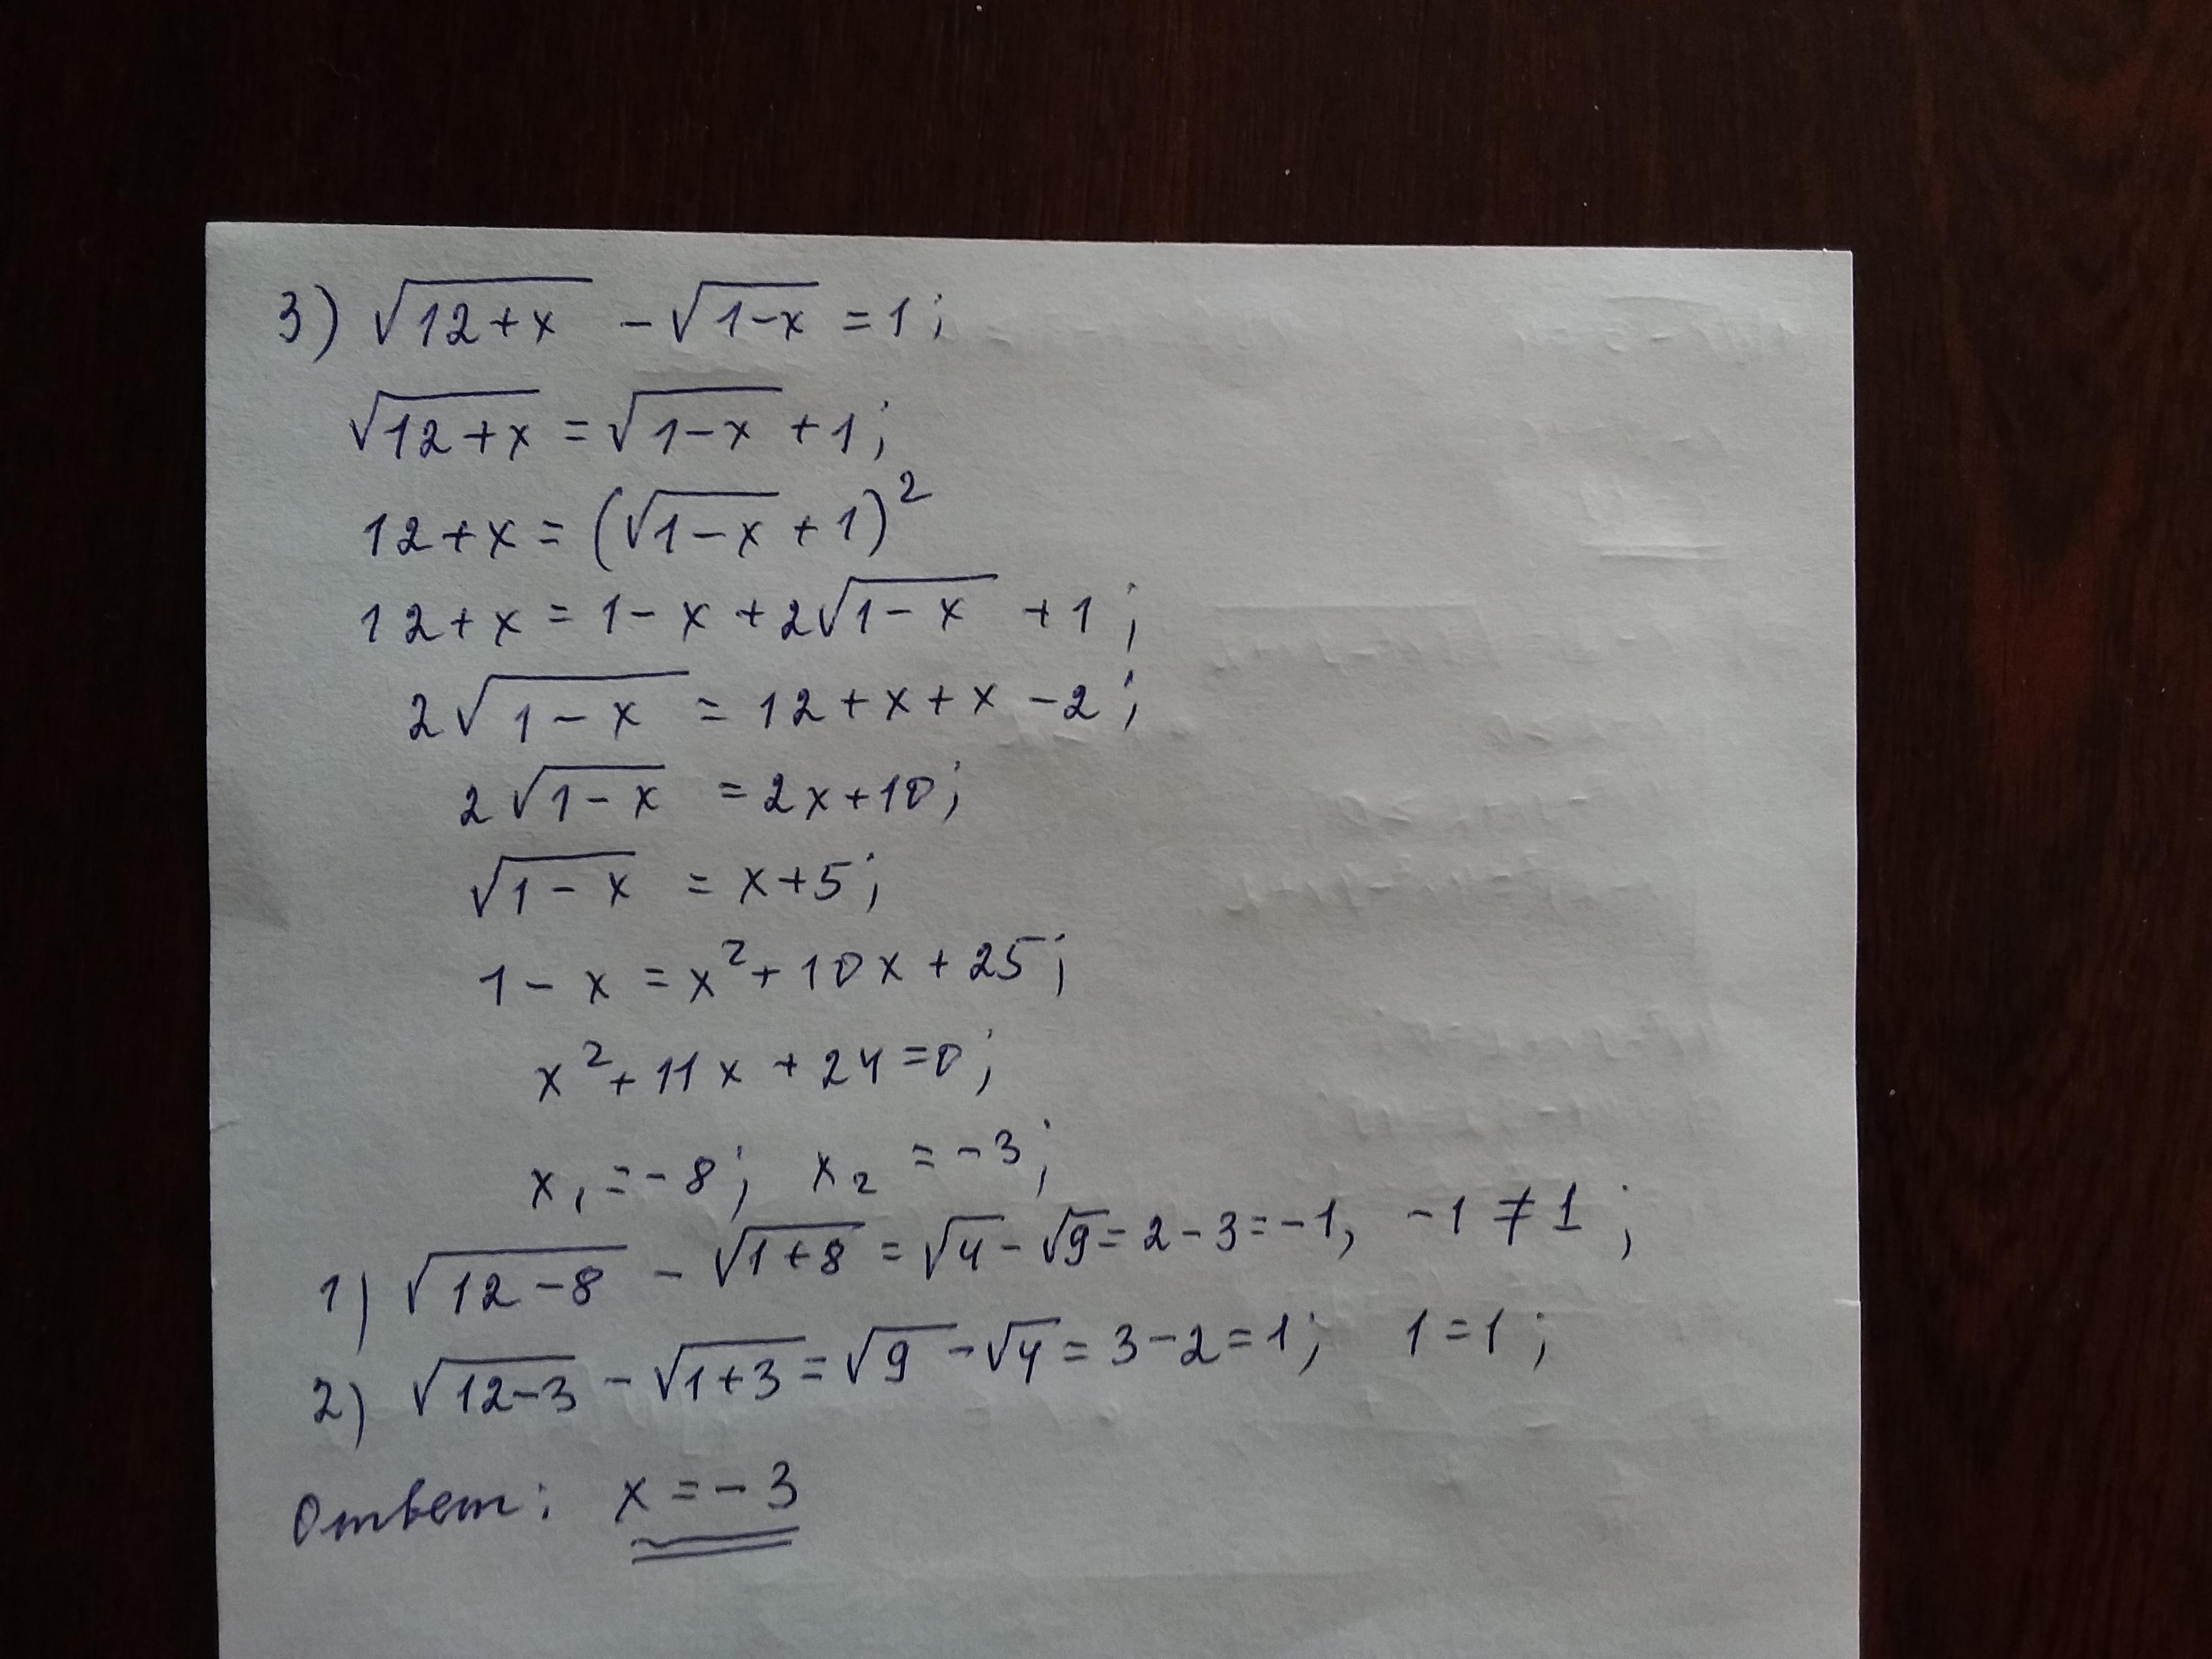 3) √(12+x) - √(1-x) = 1;
√(12+x) = √(1-x) + 1;
12+x = (√(1-x) + 1)²
12+x = 1-x+2√(1-x) + 1;
2√(1-x) = 12+x+x-2;
2√(1-x) = 2x+10;
√(1-x) = x+5;
1-x = x²+10x+25;
x²+11x+24=0;
x₁=-8; x₂=-3;
1) √(12-8) - √(1+8) = √4-√9=2-3=-1, -1≠1;
2) √(12-3) - √(1+3) = √9-√4=3-2=1; 1=1;
Ответ: x=-3